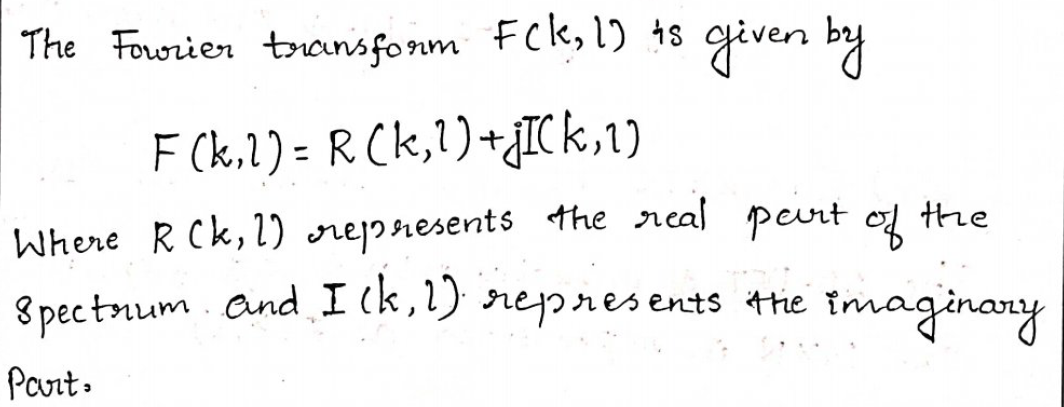 The Fourier transform F(k,l) is given by
F(k,l) = R(k,l)+jI(k,l)
Where R(k,l) represents the real part of the
Spectrum and I(k,l) represents the imaginary
Part.